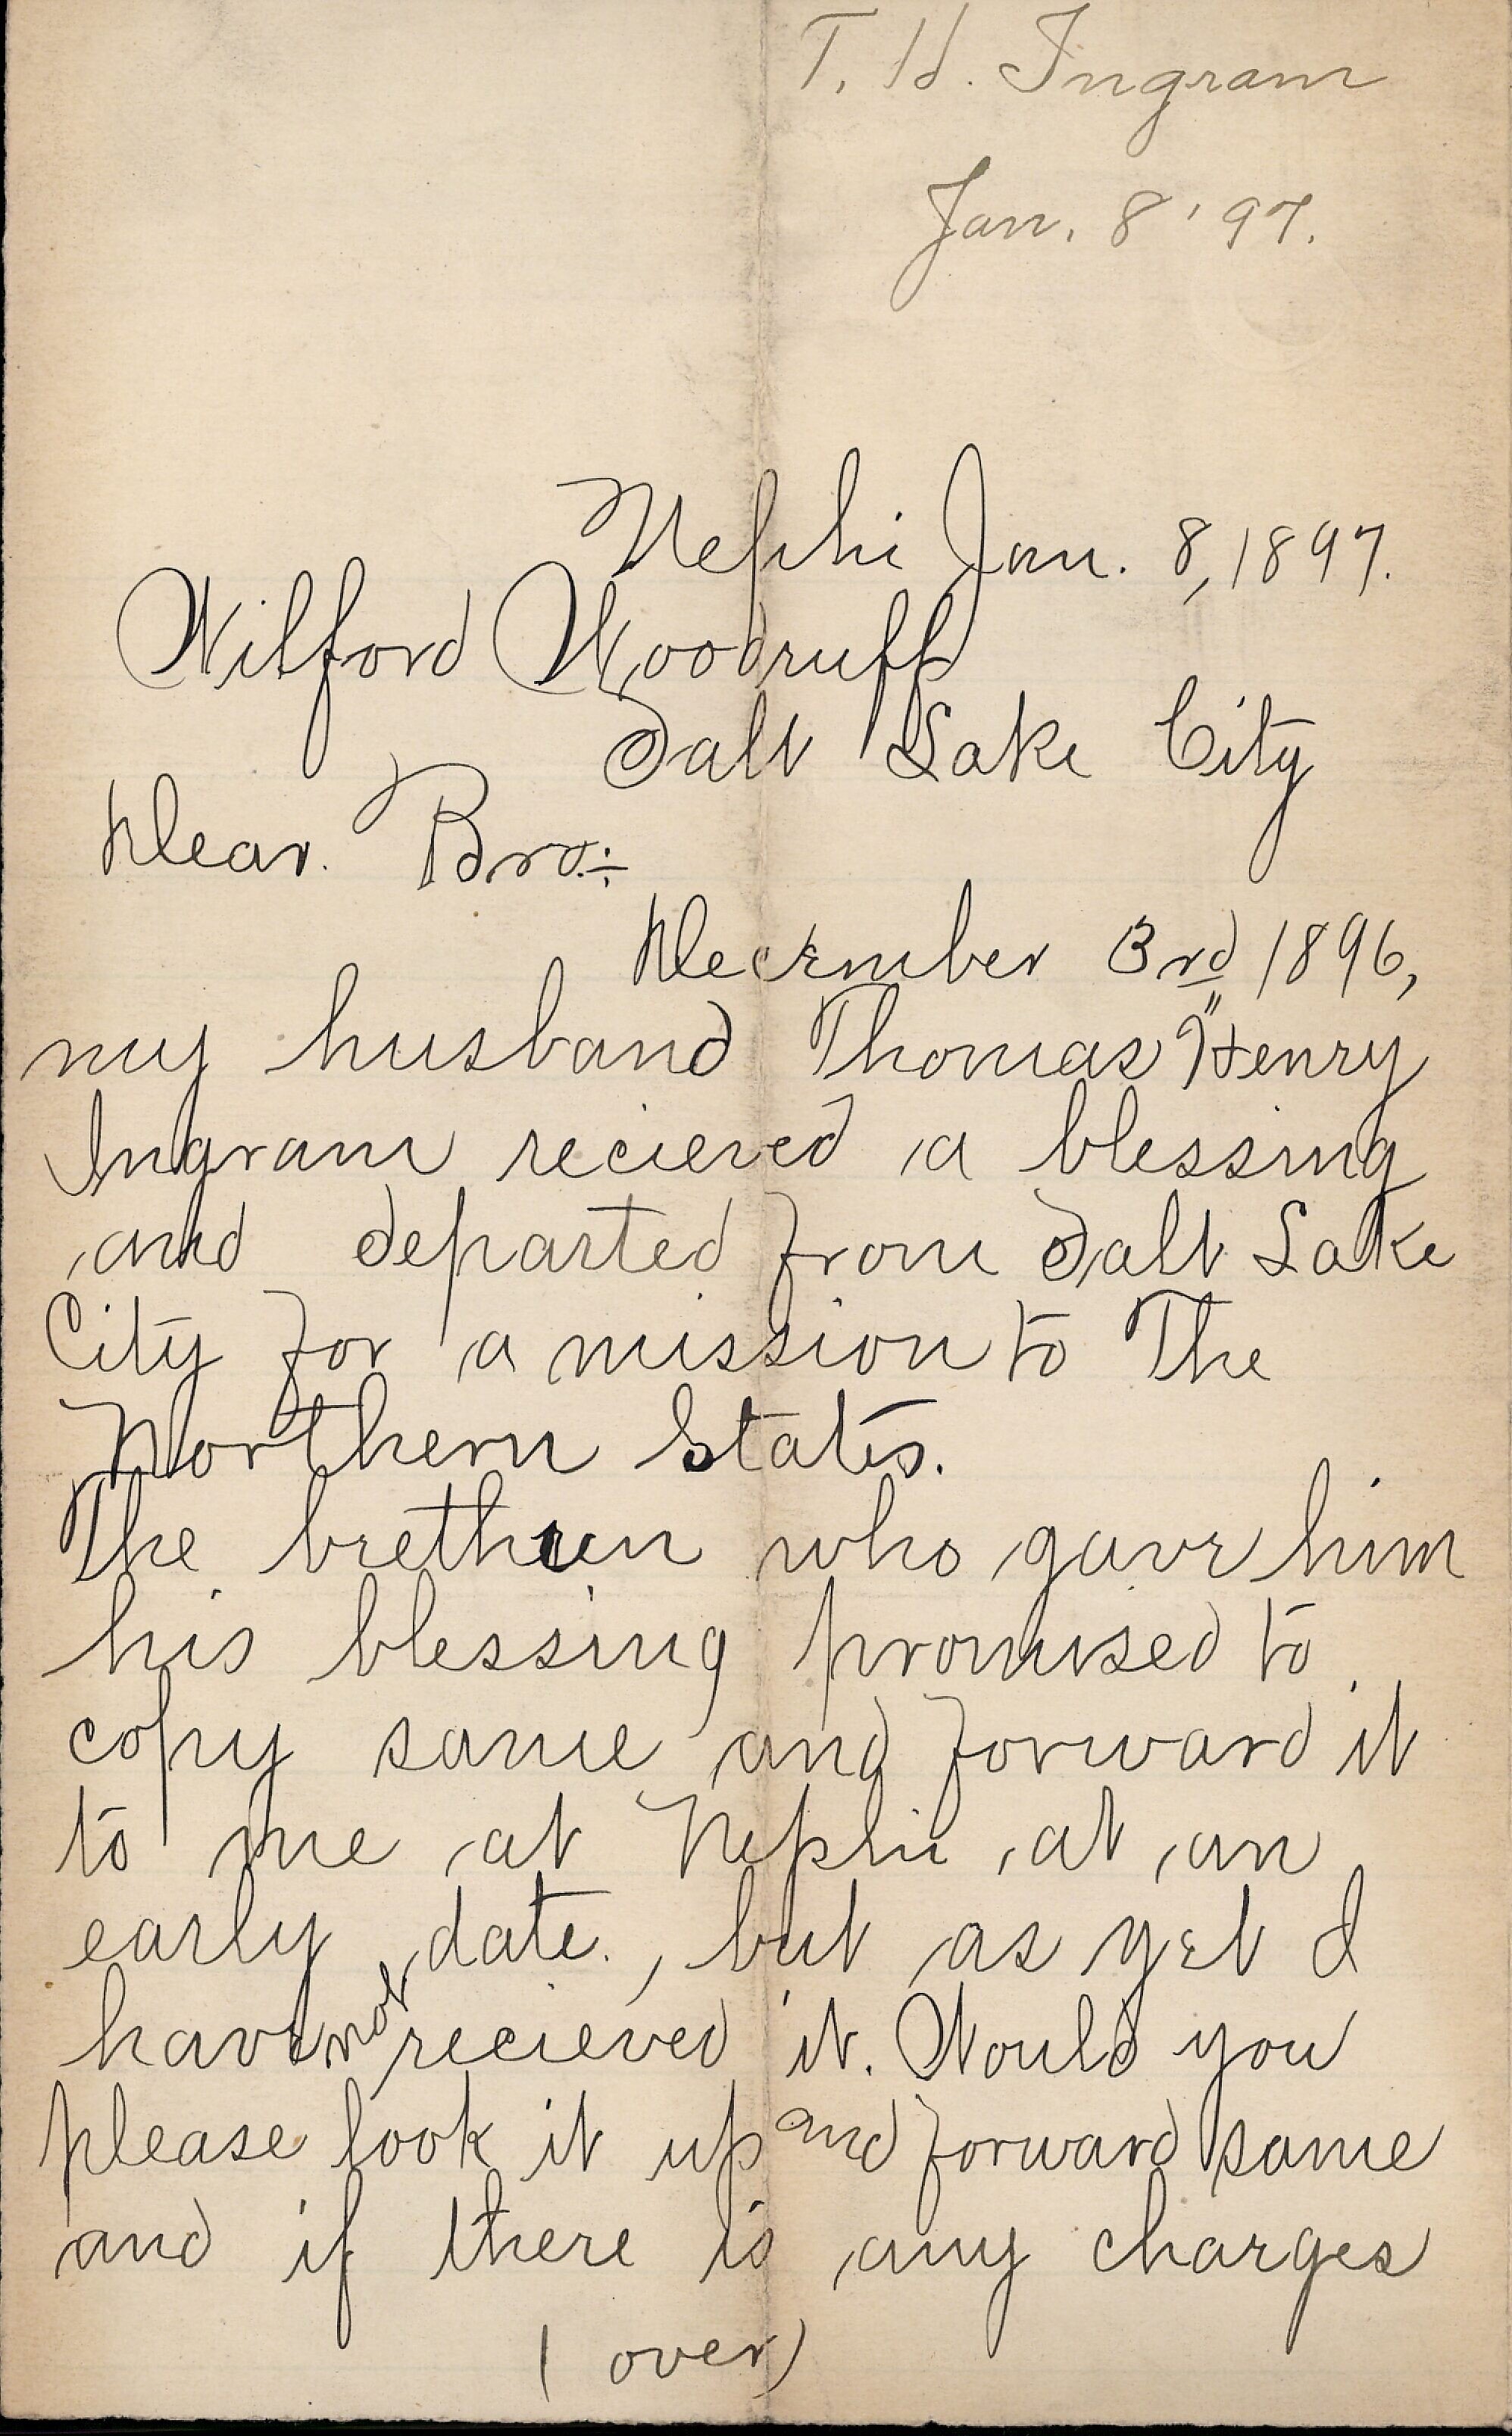 T. H. Ingram
Jan. 8 '97.
Nephi Jan. 8, 1897.
Wilford Woodruff
Salt Lake City
Dear. Bro.:
December 3rd 1896,
my husband Thomas "Henry
Ingram recieved a blessing
and departed from Salt Lake
City for a mission to The
Northern States.
The brethren who gave him
his blessing promised to
copy same and forward it
to me at Nephi, at an
early date., but as yet I
have not recieved it. Would you
please look it up and forward same
and if there is any charges
(over)